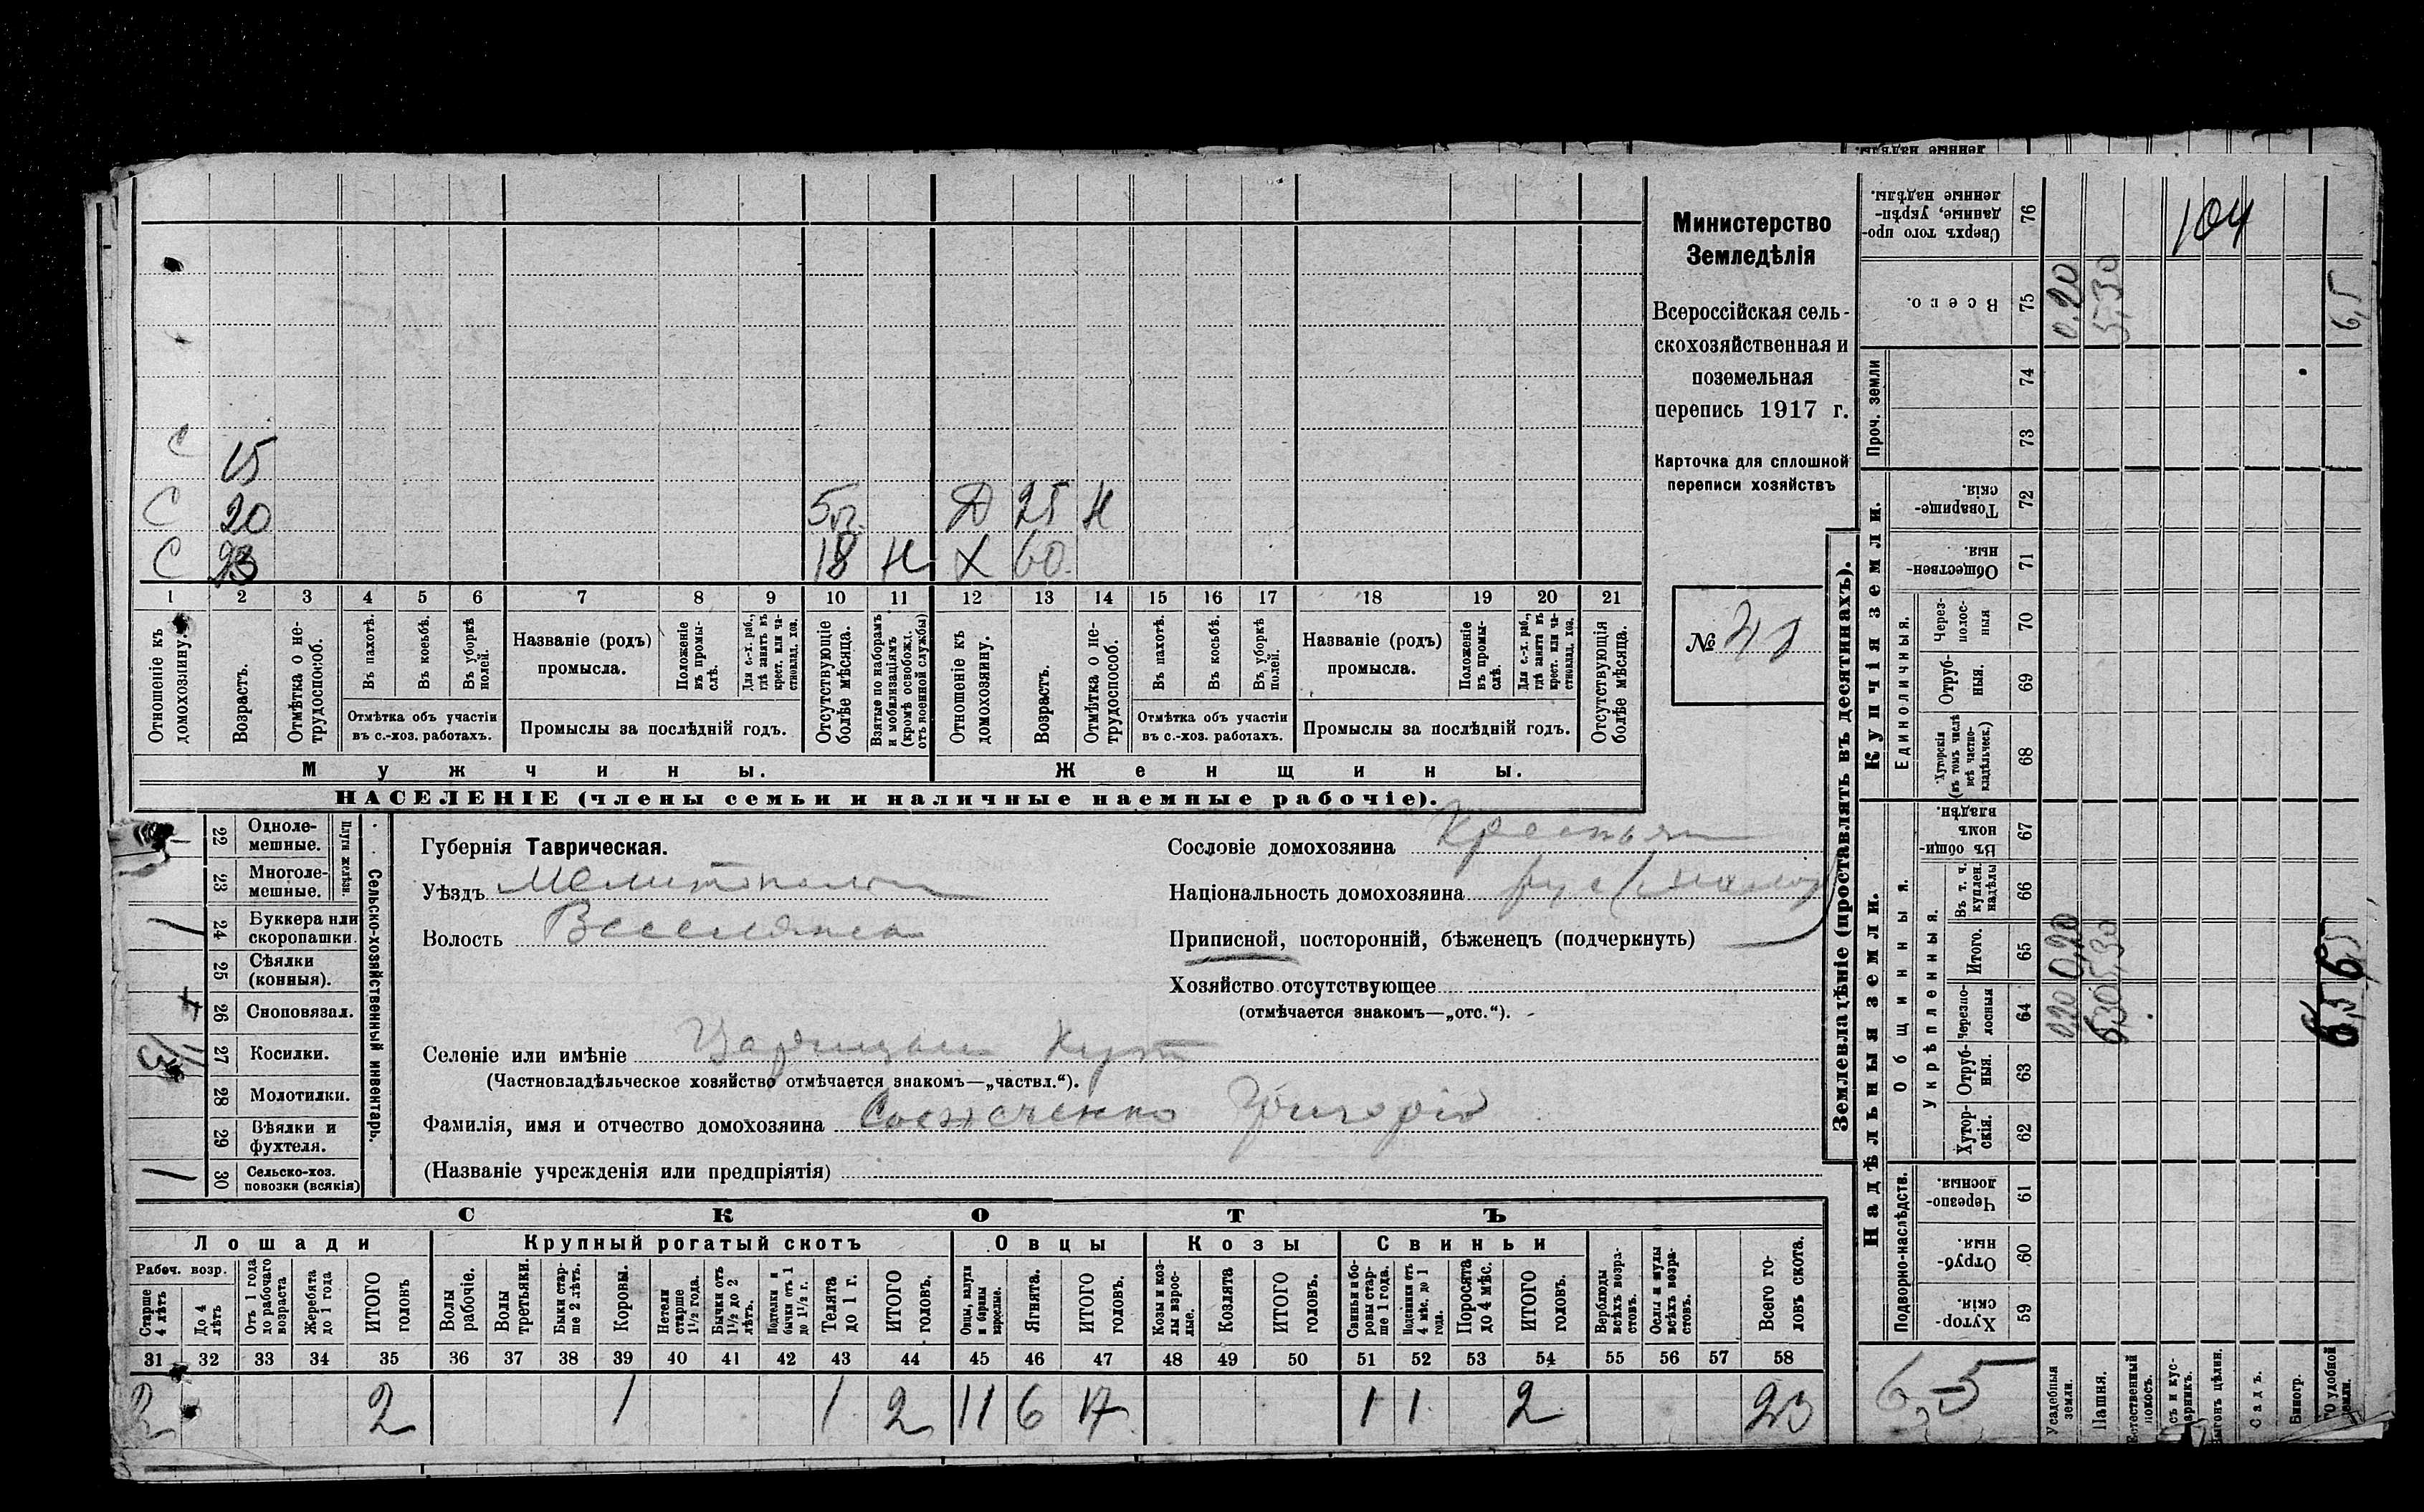 Министерство
Земледѣлія
Всероссійская сель-
скохозяйственная и
поземельная
перепись 1917 г.
Карточка для сплошной
переписи хозяйствъ
№ 41
С 15
С 20 5 Д 25 Н
С 23 18 Н Х 60
1 2 3 4 5 6 7 8 9 10 11 12 13 14 15 16 17 18 19 20 21
Отношеніе къ домохозяину.
Возрастъ.
Отмѣтка о не-трудоспособ.
Въ пахотѣ.
Въ косьбѣ.
Въ уборкѣ полей.
Отмѣтка объ участіи въ с.-хоз. работахъ.
Названіе (родъ) промысла.
Положеніе въ промы-слѣ.
Для с.-х. раб., гдѣ занятъ въ крест. или ча-стновлад. хоз.
Промыслы за послѣдній годъ.
Отсутствующіе болѣе мѣсяца.
Взятые по наборамъ и мобилизаціямъ (кромѣ освобожд. отъ военной службы)
Отношеніе къ домохозяину.
Возрастъ.
Отмѣтка о не-трудоспособ.
Въ пахотѣ.
Въ косьбѣ.
Въ уборкѣ полей.
Отмѣтка объ участіи въ с.-хоз. работахъ.
Названіе (родъ) промысла.
Положеніе въ промы-слѣ.
Для с.-х. раб., гдѣ занята въ крест. или ча-стновлад. хоз.
Промыслы за послѣдній годъ.
Отсутствующія болѣе мѣсяца.
Мужчины. Женщины.
НАСЕЛЕНІЕ (члены семьи и наличные наемные рабочіе).
Сельско-хозяйственный инвентарь.
Плуги желѣзн.
22 Одноле-мешные.
23 Многоле-мешные.
24 Буккера или скоропашки. 1
25 Сѣялки (конныя).
26 Сноповязал.
27 Косилки.
28 Молотилки.
29 Вѣялки и фухтеля.
30 Сельско-хоз. повозки (всякія) 1
Губернія Таврическая.
Уѣздъ Мелитопольск
Волость Веселянск
Селеніе или имѣніе Царицын Кут
(Частновладѣльческое хозяйство отмѣчается знакомъ—„частвл.“).
Фамилія, имя и отчество домохозяина Григорій
(Названіе учрежденія или предпріятія)
Сословіе домохозяина Крестьян
Національность домохозяина рус (малор
Приписной, посторонній, бѣженецъ (подчеркнуть)
Хозяйство отсутствующее
(отмѣчается знакомъ—„отс.“).
СКОТЪ
Лошади Крупный рогатый скотъ Овцы Козы Свиньи
Рабоч. возр.
Старше 4 лѣтъ
До 4 лѣтъ
Отъ 1 года до рабочаго возраста
Жеребята до 1 года
ИТОГО головъ
Волы рабочіе.
Волы третьяки.
Быки стар-ше 2 лѣтъ.
Коровы.
Нетели старше 1½ года.
Бычки отъ 1½ до 2 лѣтъ.
Подтелки и бычки отъ 1 до 1½ г.
Телята до 1 г.
ИТОГО головъ.
Овцы, валухи и бараны взрослые.
Ягнята.
ИТОГО головъ.
Козы и коз-лы взрос-лые.
Козлята
ИТОГО головъ.
Свиньи и бо-ровы стар-ше 1 года.
Подсвинки отъ 4 мѣс. до 1 года.
Поросята до 4 мѣс.
ИТОГО головъ.
Верблюды всѣхъ возра-стовъ.
Ослы и мулы всѣхъ возра-стовъ.
Всего го-ловъ скота.
31 32 33 34 35 36 37 38 39 40 41 42 43 44 45 46 47 48 49 50 51 52 53 54 55 56 57 58
2 2 1 1 2 11 6 17 1 1 2 23
Землевладѣніе (проставлять въ десятинахъ).
Надѣльныя земли. Купчія земли. Проч. земли
Подворно-наслѣдств.
Общинныя.
Укрѣпленныя.
Единоличныя.
76 Сверхъ того про-данные, укрѣп-ленные надѣлы. 104
75 Всего. 0,20 5,30 6,5
74
73
72 Товарище-скія.
71 Обществен-ныя.
70 Через-полос-ныя
69 Отруб-ныя.
68 Хуторскія (въ томъ числѣ всѣ частно-владѣльческ.)
67 Въ общи-номъ владѣн.
66 Въ т. ч. куплен. надѣлы
65 Итого. 0,20 5,30 6,5
64 Черезпо-лосныя 0,20 5,30 6,5
63 Отруб-ныя.
62 Хутор-скія.
61 Черезпо-лосныя.
60 Отруб-ныя.
59 Хутор-скія
6,5
Усадебныя земли.
Пашня.
Естественный покосъ.
Садъ.
Виногр.